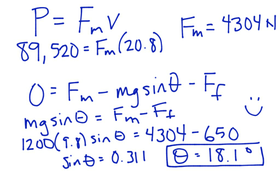 P = FₘV
Fₘ = 4304 N
89,520 = Fₘ(20.8)
0 = Fₘ - mg sinθ - F_f
mg sinθ = Fₘ - F_f
1200(9.8) sinθ = 4304 - 650
sinθ = 0.311
θ = 18.1°